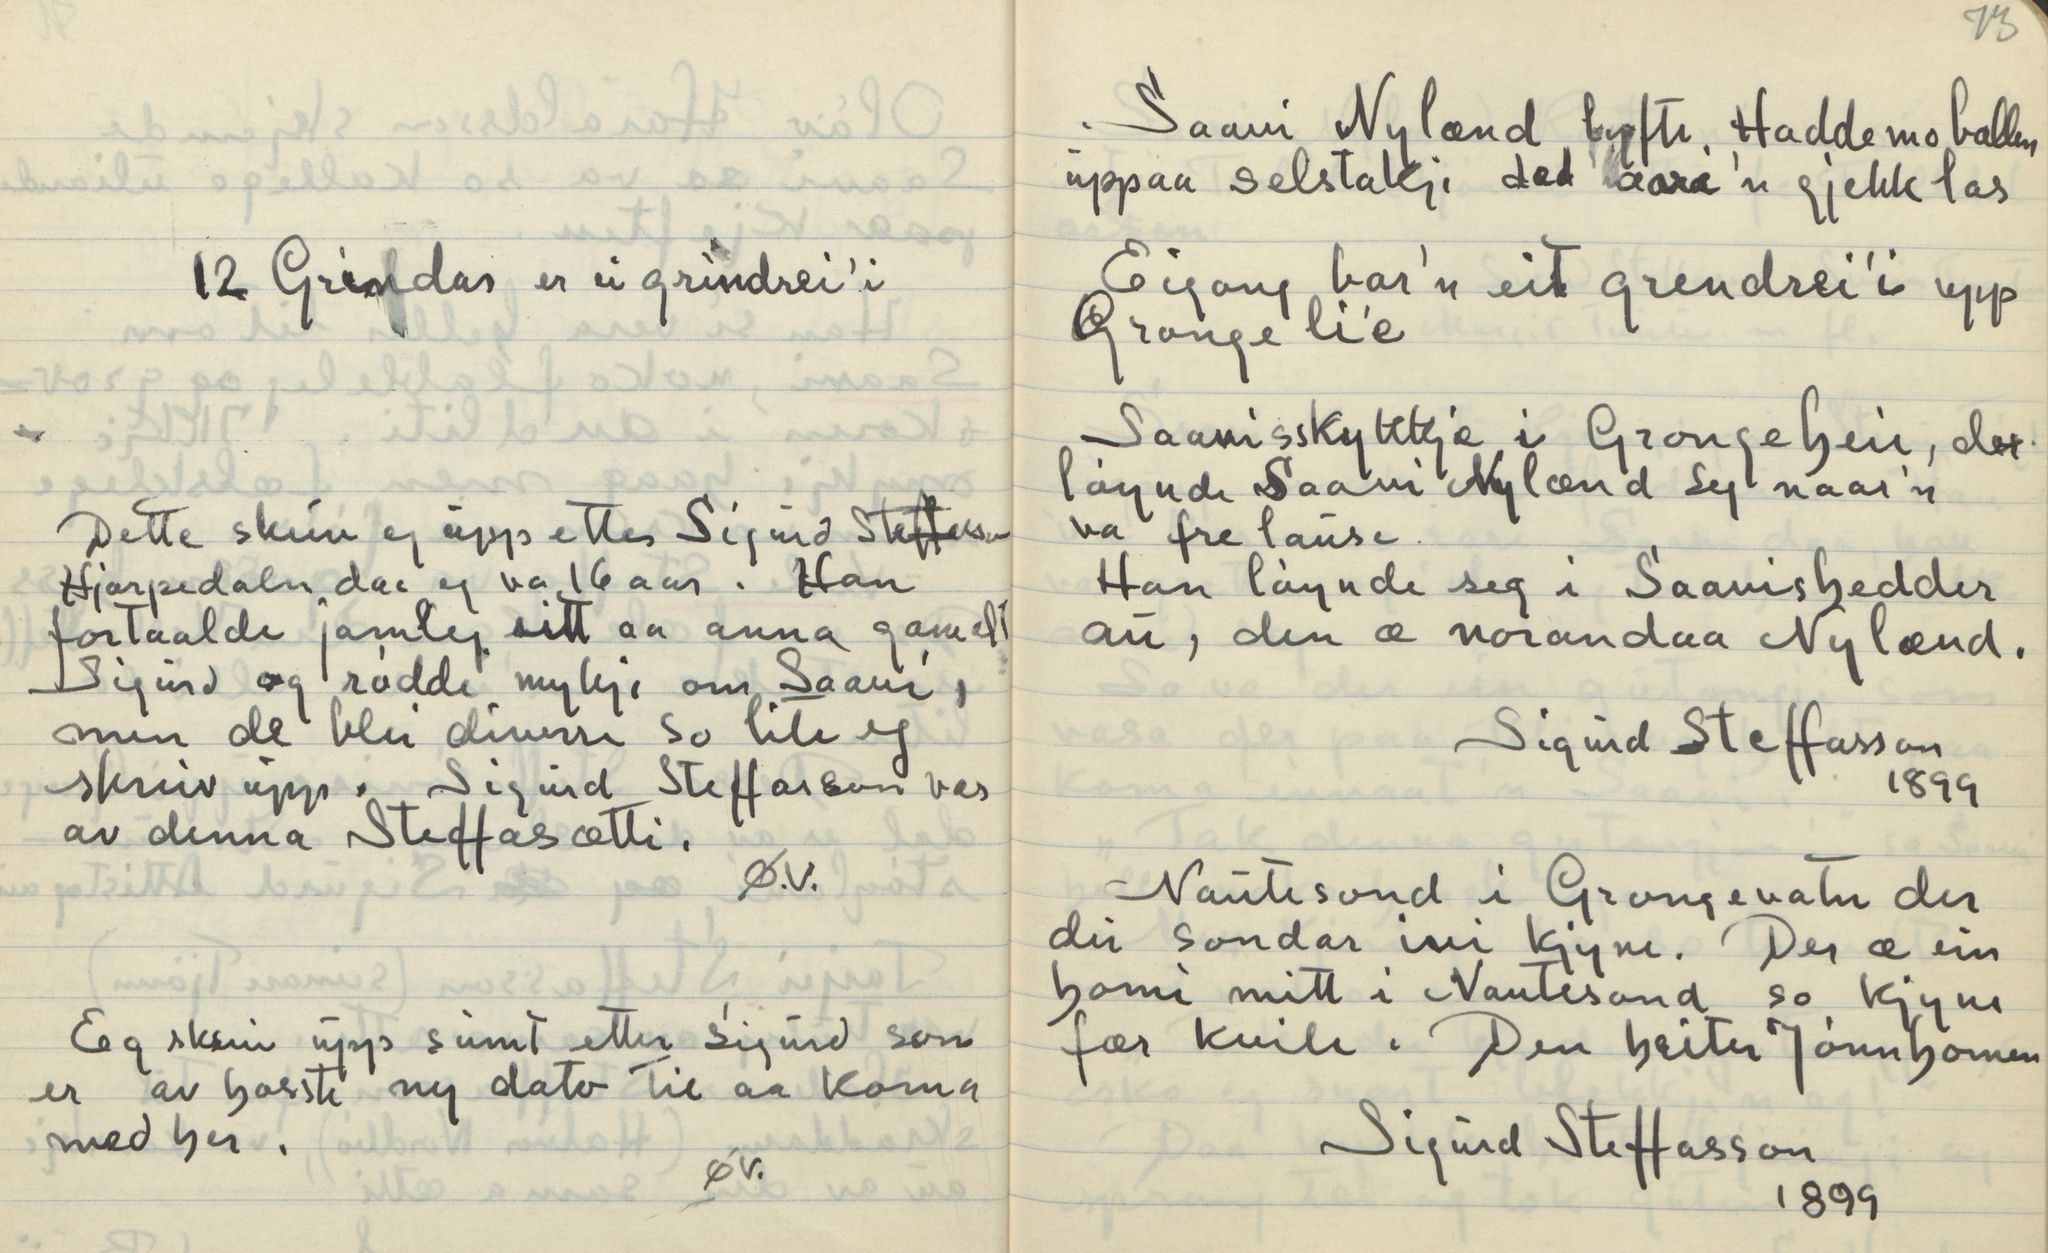 12 Grindar er ei grindrei'i
Dette skreiv eg upp etter Sigurd Steffasson
Hjarpedalen dae eg va 16 aar. Han
fortaalde jamleg sitt aa anna gamalt
Sigurd og rødde mykji om Saavi,
men de blei diverre so lite eg
skreiv upp. Sigurd Steffasson var
av denna Steffasætti.
Ø.V.
Eg skreiv upp sumt etter Sigurd som
er av hasste ny dato til aa koma
med her.
ØV.
73
Saavi Nylænd lyfte Haddemoballen
uppaa selstakji ded aare'n gjekk las
Eigong bar'n eit grendrei'i upp
Grongeli'e
Saavisskykkje i Grongeheii, der
løynde Saavi Nylænd seg naar'n
va frelause.
Han løynde seg i Saavishedder
au, den æ norandaa Nylænd.
Sigurd Steffasson
1899
Nautesond i Grongevatn der
dei sondar ivi kjyne. Der æ ein
homi mitt i Nautesond so kjyne
fær kvile. Den heiter Jønnhomen
Sigurd Steffasson
1899